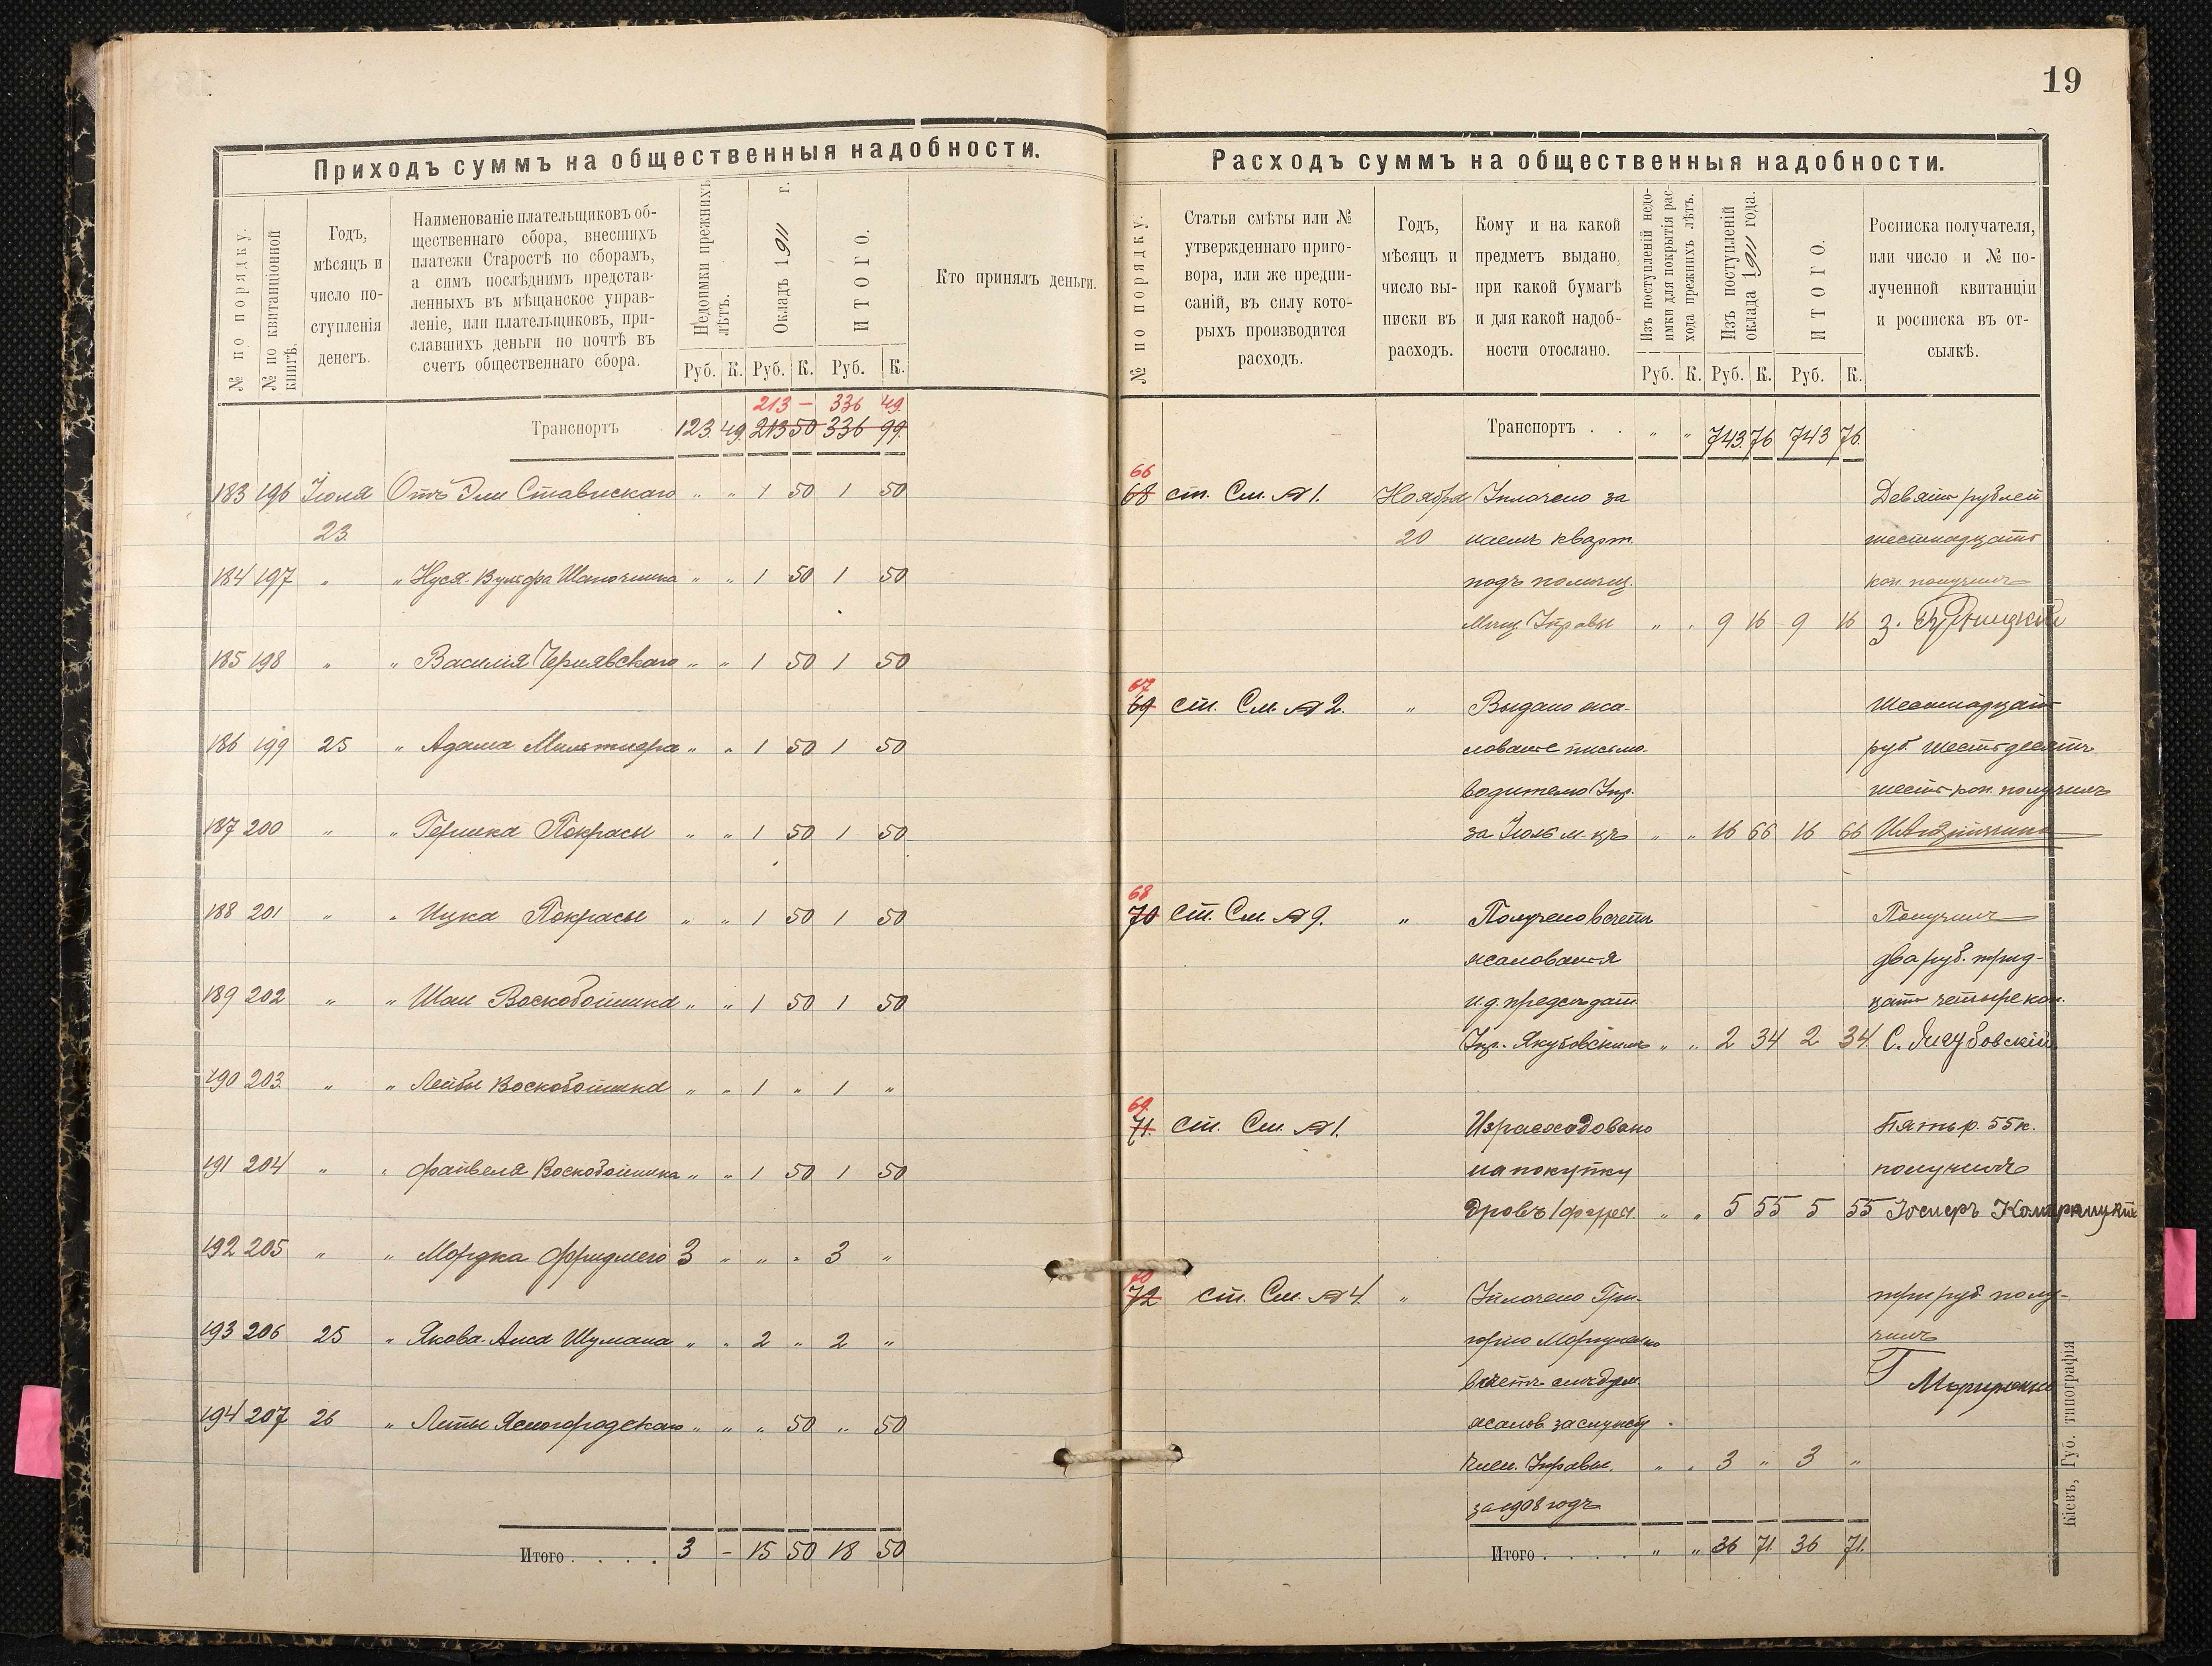 19
Приходъ суммъ на общественныя надобности.
№ по порядку.
№ по квитанціонной книгѣ.
Годъ,
мѣсяцъ и
число по-
ступленія
денегъ.
Наименованіе плательщиковъ об-
щественнаго сбора, внесшихъ
платежи Старостѣ по сборамъ,
а симъ послѣднимъ представ-
ленныхъ въ мѣщанское управ-
леніе, или плательщиковъ, при-
славшихъ деньги по почтѣ въ
счетъ общественнаго сбора.
Недоимки прежнихъ лѣтъ.
Окладъ 1911 г.
ИТОГО.
Кто принялъ деньги.
Руб. К. Руб. К. Руб. К.
213 — 336 49.
Транспортъ 123. 49. 213 50 336 99.
183 196 Іюля Отъ Эли Ставискаго " " 1 50 1 50
23.
184 197 " " Нуся-Вульфа " " 1 50 1 50
185 198 " " Василія Чернявскаго " " 1 50 1 50
186 199 25 " Адама " " 1 50 1 50
187 200 " " Гершка Покрасы " " 1 50 1 50
188 201 " " Ицка Покрасы " " 1 50 1 50
189 202 " " Шаи Воскобойника " " 1 50 1 50
190 203 " " Лейбы Воскобойника " " 1 " 1 "
191 204 " " Файвеля Воскобойника " " 1 50 1 50
192 205 " " Мордка 3 " " " 3 "
193 206 25 " Якова Шумана " " 2 " 2 "
194 207 26 " Ясногородскаго " " " 50 " 50
Итого . . . . 3 - 15 50 18 50
Расходъ суммъ на общественныя надобности.
№ по порядку.
Статьи смѣты или №
утвержденнаго приго-
вора, или же предпи-
саній, въ силу кото-
рыхъ производится
расходъ.
Годъ,
мѣсяцъ и
число вы-
писки въ
расходъ.
Кому и на какой
предметъ выдано,
при какой бумагѣ
и для какой надоб-
ности отослано.
Изъ поступленій недо-
имки для покрытія рас-
хода прежнихъ лѣтъ.
Изъ поступленій
оклада 1911 года.
ИТОГО.
Росписка получателя,
или число и № по-
лученной квитанціи
и росписка въ от-
сылкѣ.
Руб. К. Руб. К. Руб. К.
Транспортъ . . " " 743. 76 743 76.
66
68 ст. См. № 1. Ноября Уплочено за Девять рублей
20 наемъ кварт. шестнадцать
подъ помѣщ. коп. получилъ
Мѣщ. Управы " " 9 16 9 16
67
69 ст. См. № 2. " Выдано жа- Шестнадцать
лованіе письмо- руб. шестьдесятъ
водителю Упр. шесть коп. получилъ
за Іюль м-цъ " " 16 66 16 66
68
70 ст. См. № 9. " Получено въ счетъ Получилъ
жалованья два руб. трид-
и. д. предсѣдат. цать четыре коп.
Упр. Якубовскимъ " " 2 34 2 34 С. Якубовскій
69.
71. ст. См. № 1. Израсходовано Пять р. 55 к.
на покупку получилъ
дровъ " " 5 55 5 55
70
72 ст. См. № 4 " Уплочено Гри- три руб. полу-
горію чилъ
въ счетъ
жалов. за службу
член. Управы. " " 3 " 3 "
за 1908 годъ
Итого . . . . " " 36 71. 36 71.
Кіевъ, Губ. типографія